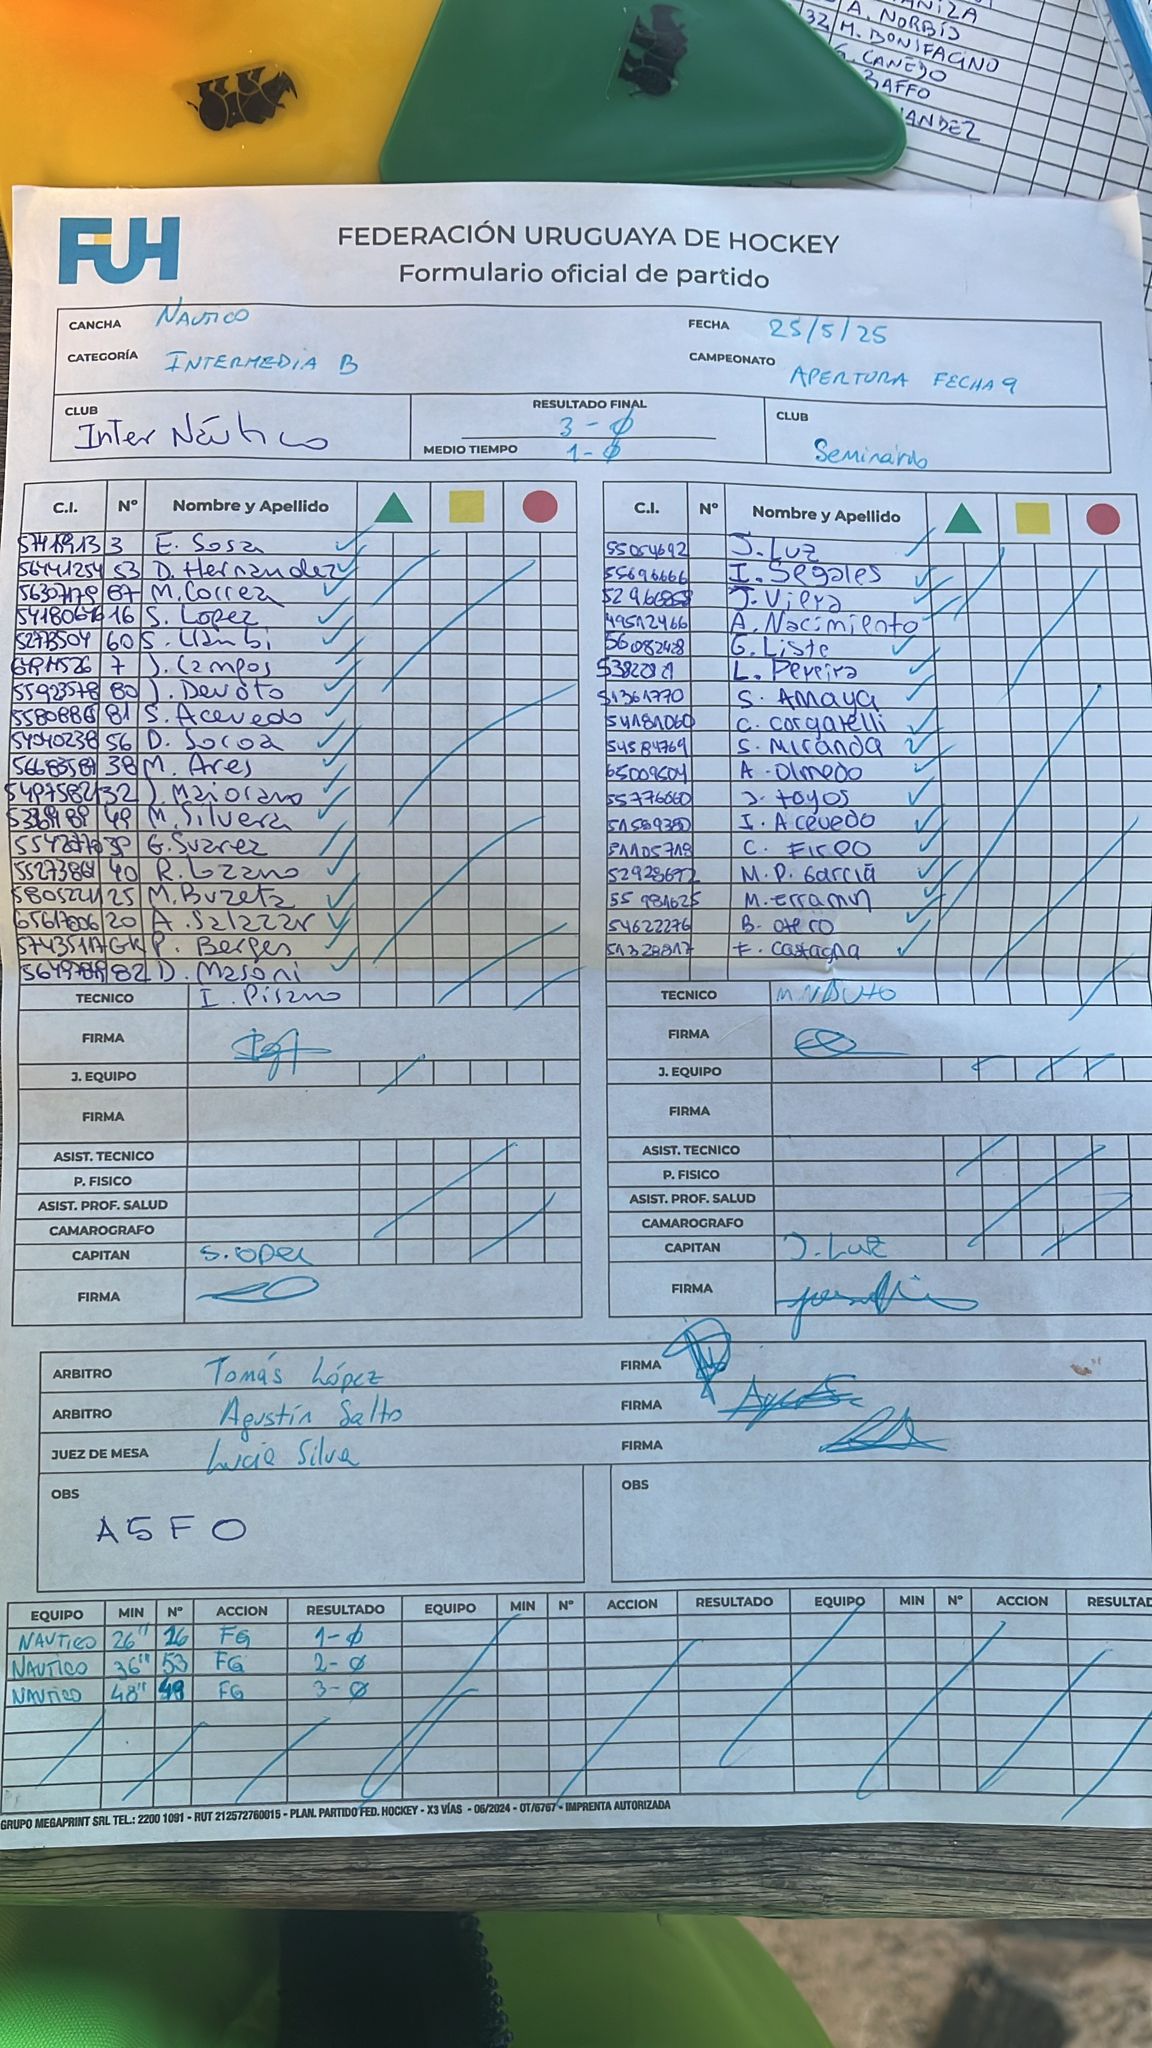 ANIZA
A. NORBIS
32 M. BONIFACINO
G. CANEDO
BAFFO
ANDEZ
FUH
FEDERACIÓN URUGUAYA DE HOCKEY
Formulario oficial de partido
CANCHA NAUTICO FECHA 25/5/25
CATEGORÍA INTERMEDIA B CAMPEONATO APERTURA FECHA 9
CLUB Inter Náutico RESULTADO FINAL 3-Ø CLUB Seminario
MEDIO TIEMPO 1-Ø
C.I. Nº Nombre y Apellido
3 E. Sosa
53 D. Hernandez
87 M. Correa
16 S. Lopez
5273504 60 S. Llambi
7 J. Campos
55923578 80 J. Devoto
81 S. Acevedo
54040238 56 D. Soroa
38 M. Ares
32 J. Maiorano
49 M. Silvera
G. Suarez
40 R. Lozano
25 M. Buzeta
20 A. Salazar
GK P. Berges
82 D. Masoni
TECNICO I. Pisano
FIRMA
J. EQUIPO
FIRMA
ASIST. TECNICO
P. FISICO
ASIST. PROF. SALUD
CAMAROGRAFO
CAPITAN S. Lopez
FIRMA
C.I. Nº Nombre y Apellido
55054692 J. Luz
55696666 I. Segales
J. Viera
49512466 A. Nacimiento
56082428 G. Liste
L. Pereira
51361770 S. Amaya
54181060 C. Corgatelli
54584769 S. Miranda
65009504 A. Olmedo
55776060 J. Hoyos
51589380 I. Acevedo
51105718 C. Firpo
M. P. Garcia
55981625 M. Erramun
54622276 B. Otero
51328817 F. Castagna
TECNICO
FIRMA
J. EQUIPO
FIRMA
ASIST. TECNICO
P. FISICO
ASIST. PROF. SALUD
CAMAROGRAFO
CAPITAN J. Luz
FIRMA
ARBITRO Tomás López FIRMA
ARBITRO Agustín Salto FIRMA
JUEZ DE MESA Lucia Silva FIRMA
OBS A5FO
OBS
EQUIPO MIN Nº ACCION RESULTADO EQUIPO MIN Nº ACCION RESULTADO EQUIPO MIN Nº ACCION RESULTAD
NAUTICO 26" 16 FG 1-Ø
NAUTICO 36" 53 FG 2-Ø
NAUTICO 48" 49 FG 3-Ø
GRUPO MEGAPRINT SRL TEL.: 2200 1091 - RUT 212572760015 - PLAN. PARTIDO FED. HOCKEY - X3 VÍAS - 06/2024 - OT/6767 - IMPRENTA AUTORIZADA